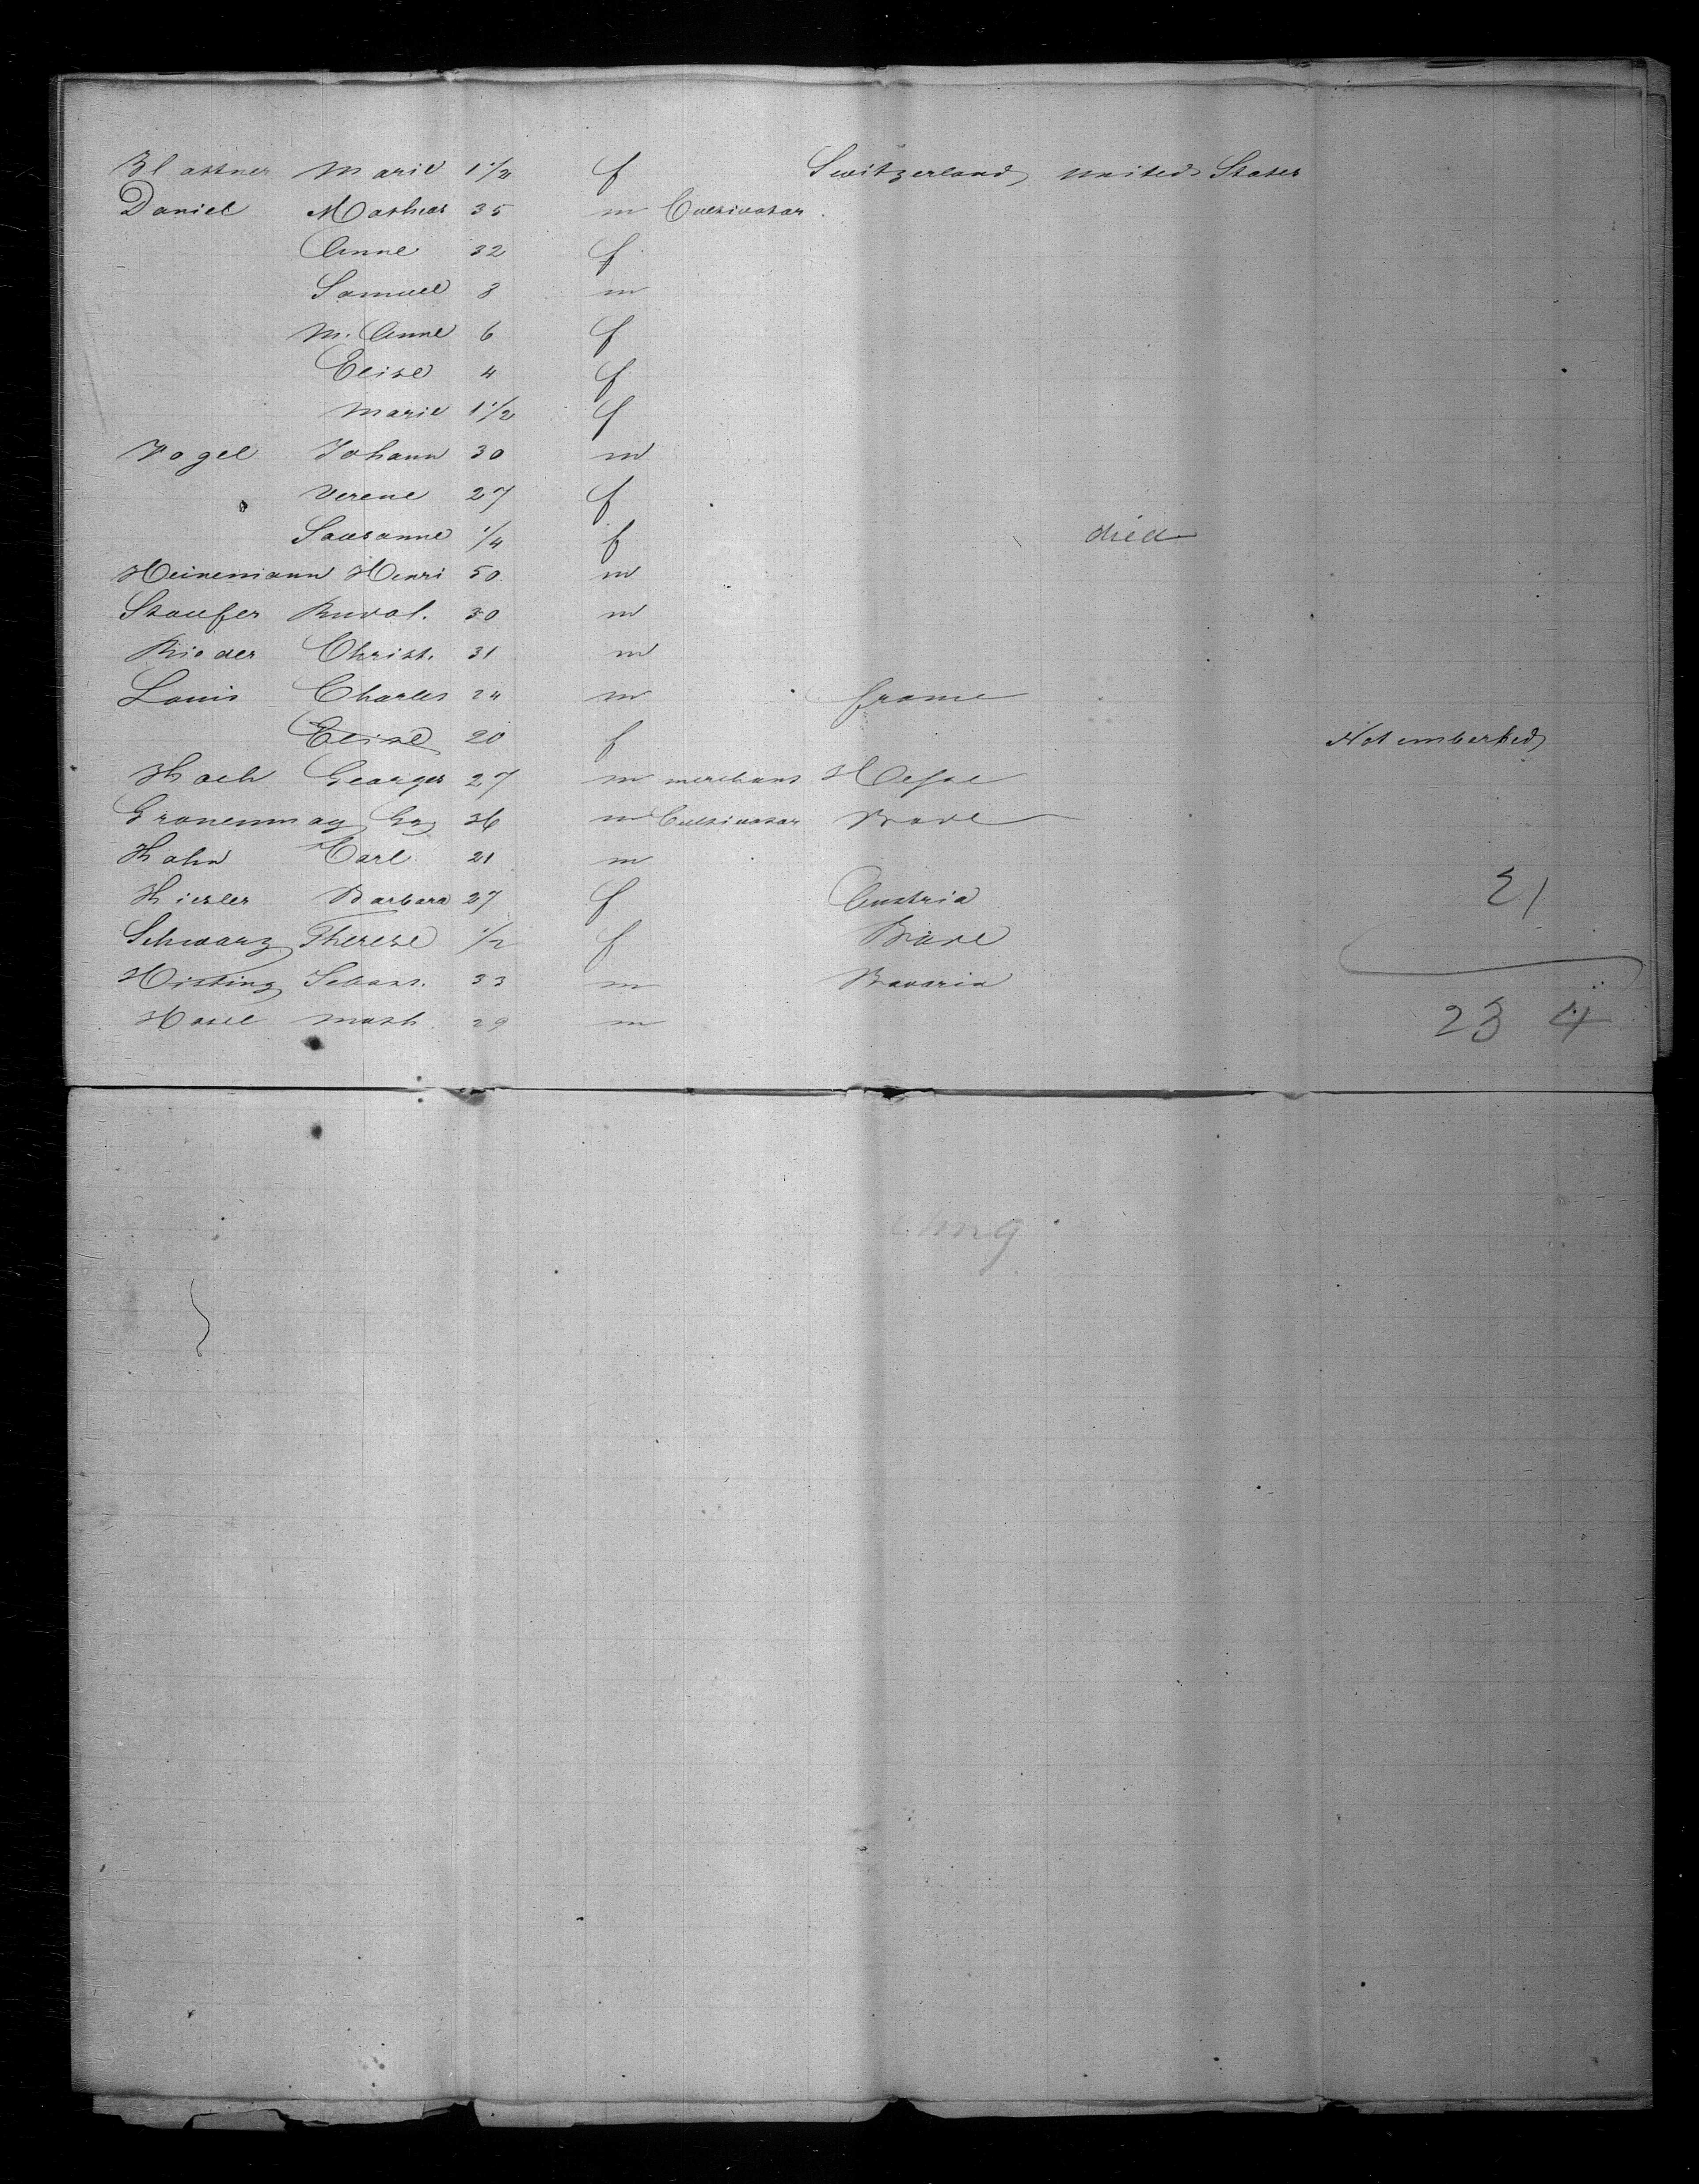 Blattner Marie 1 1/2 f Switzerland United States
Daniel Mathias 35 m Cultivator
Anne 32 f
Samuel 8 m
M. Anne 6 f
Elise 4 f
Marie 1 1/2 f
Vogel Johann 30 m
Verene 27 f
Sausanne 1/4 f died
Heinemann Henri 50 m
Staufer Rudol. 30 m
Rieder Christ. 31 m
Louis Charles 24 m France
Elise 20 f Not embarked
Hach Georges 27 m merchant Hesse
Gronenmay Gg 36 m Cultivator Bade
Hahn Carl 21 m
Hiesler Barbara 27 f Austria
21
Schwarz Therese 1/2 f Bade
Histing Sebast. 33 m Bavaria
Hasel Math 29 m
23 4